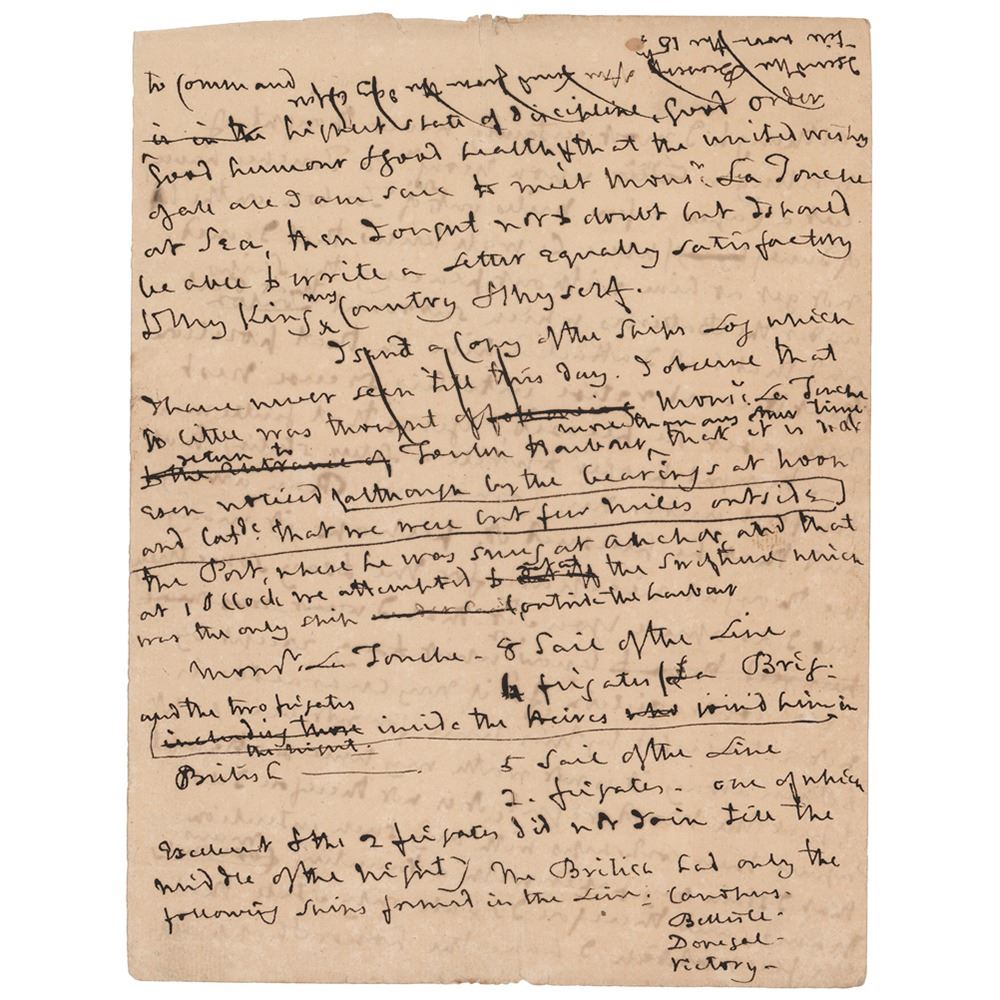 to command
is in the highest state of discipline, Good order
Good humour & good health, & that the united wishes
of all are I am sure to meet Monsr. La Touche
at Sea, then I ought not to doubt but I should
be able to write a Letter Equally satisfactory
to My King my Country & Myself.
I send a Copy of the Ships Log which
I have never seen till this day. I observe that
so little was thought of Monsr. La Touche
more than any other time
return to
to the entrance of Toulon Harbour, that it is not
Even noticed although by the bearings at noon
and that we were but few miles outside
the Port, where he was snug at anchor, and that
at 1 O Clock we attempted to the Swiftsure which
was the only ship outside the harbour
Monsr. La Touche - 8 Sail of the Line
4 frigates & a Brig.
and the two frigates
including those inside the Heires who joined him in
the night.
British 5 Sail of the Line
2. frigates - one of which
Excellent & the 2 frigates did not Join till the
middle of the night) The British had only the
following Ships formed in the Line: Canopus -
Bellisle -
Donegal -
Victory -